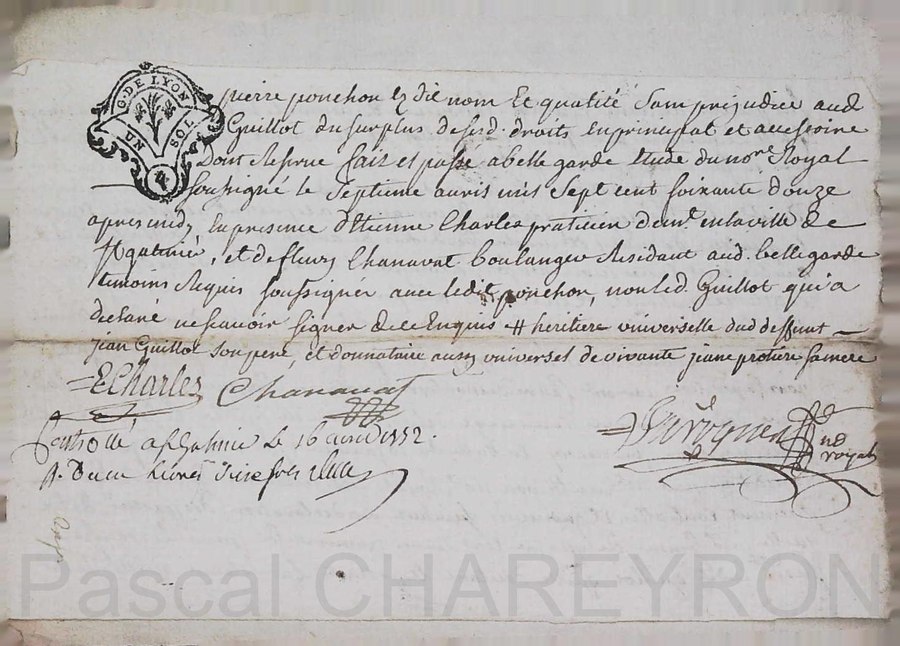 G. DE LYON
UN SOL
pierre ponchon es dit nom Et qualité Sans prejudice aud
Guillot du surplus de sesd. droits En principal et accessoire
Dont fait et passé a bellegarde Etude du nore Royal
soussigné le Septieme avril mil Sept cent soixante douze
apres midy En presence d'Etienne Charles praticien demt en la ville de
St galmier, et de fleury Chanavat boulanger Residant aud. bellegarde
temoins Requis soussignés avec ledit ponchon, non led. Guillot qui a
declaré ne scavoir signer de ce Enquis # heritiere universelle dud deffunt
jean Guillot son pere, et donnataire aussy universel de vivante jeane protiere sa mere
ECharles Chanavat
nre royal
Controllé a St galmier Le 16 avril 1772.
R.
Pascal CHAREYRON